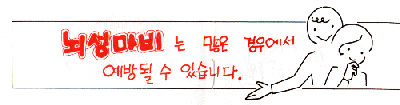 뇌성마비 는 많은 경우에서
예방될 수 있습니다.